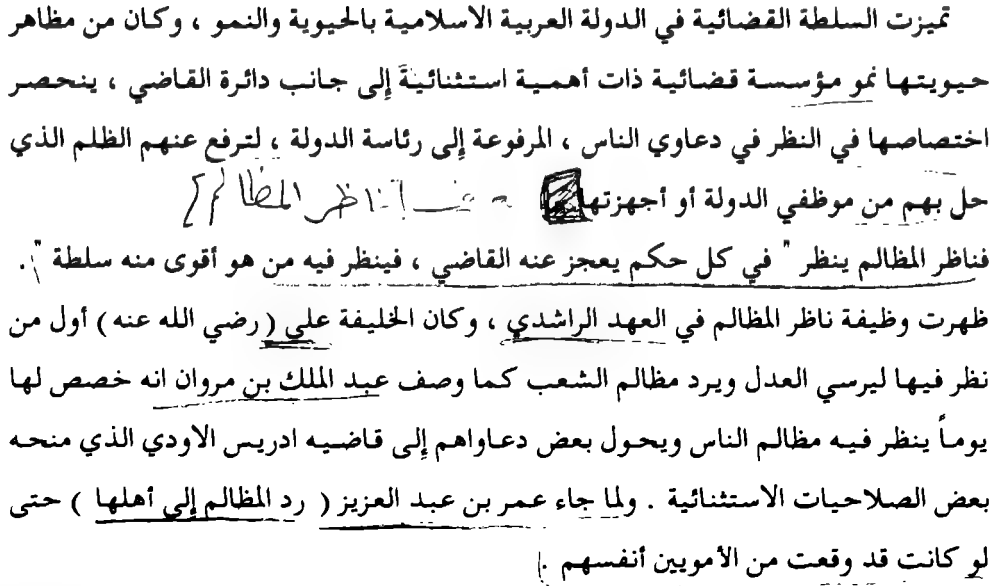 تميزت السلطة القضائية في الدولة العربية الاسلامية بالحيوية والنمو ، وكان من مظاهر
حيويتها نمو مؤسسة قضائية ذات أهمية استثنائية إلى جانب دائرة القاضي ، ينحصر
اختصاصها في النظر في دعاوي الناس ، المرفوعة إلى رئاسة الدولة ، لترفع عنهم الظلم الذي
حل بهم من موظفي الدولة أو أجهزتها ناظر المظالم
فناظر المظالم ينظر " في كل حكم يعجز عنه القاضي ، فينظر فيه من هو أقوى منه سلطة " .
ظهرت وظيفة ناظر المظالم في العهد الراشدي ، وكان الخليفة علي ( رضي الله عنه ) أول من
نظر فيها ليرسي العدل ويرد مظالم الشعب كما وصف عبد الملك بن مروان انه خصص لها
يوماً ينظر فيه مظالم الناس ويحول بعض دعاواهم إلى قاضيه ادريس الاودي الذي منحه
بعض الصلاحيات الاستثنائية . ولما جاء عمر بن عبد العزيز ( رد المظالم إلى أهلها ) حتى
لو كانت قد وقعت من الأمويين أنفسهم .